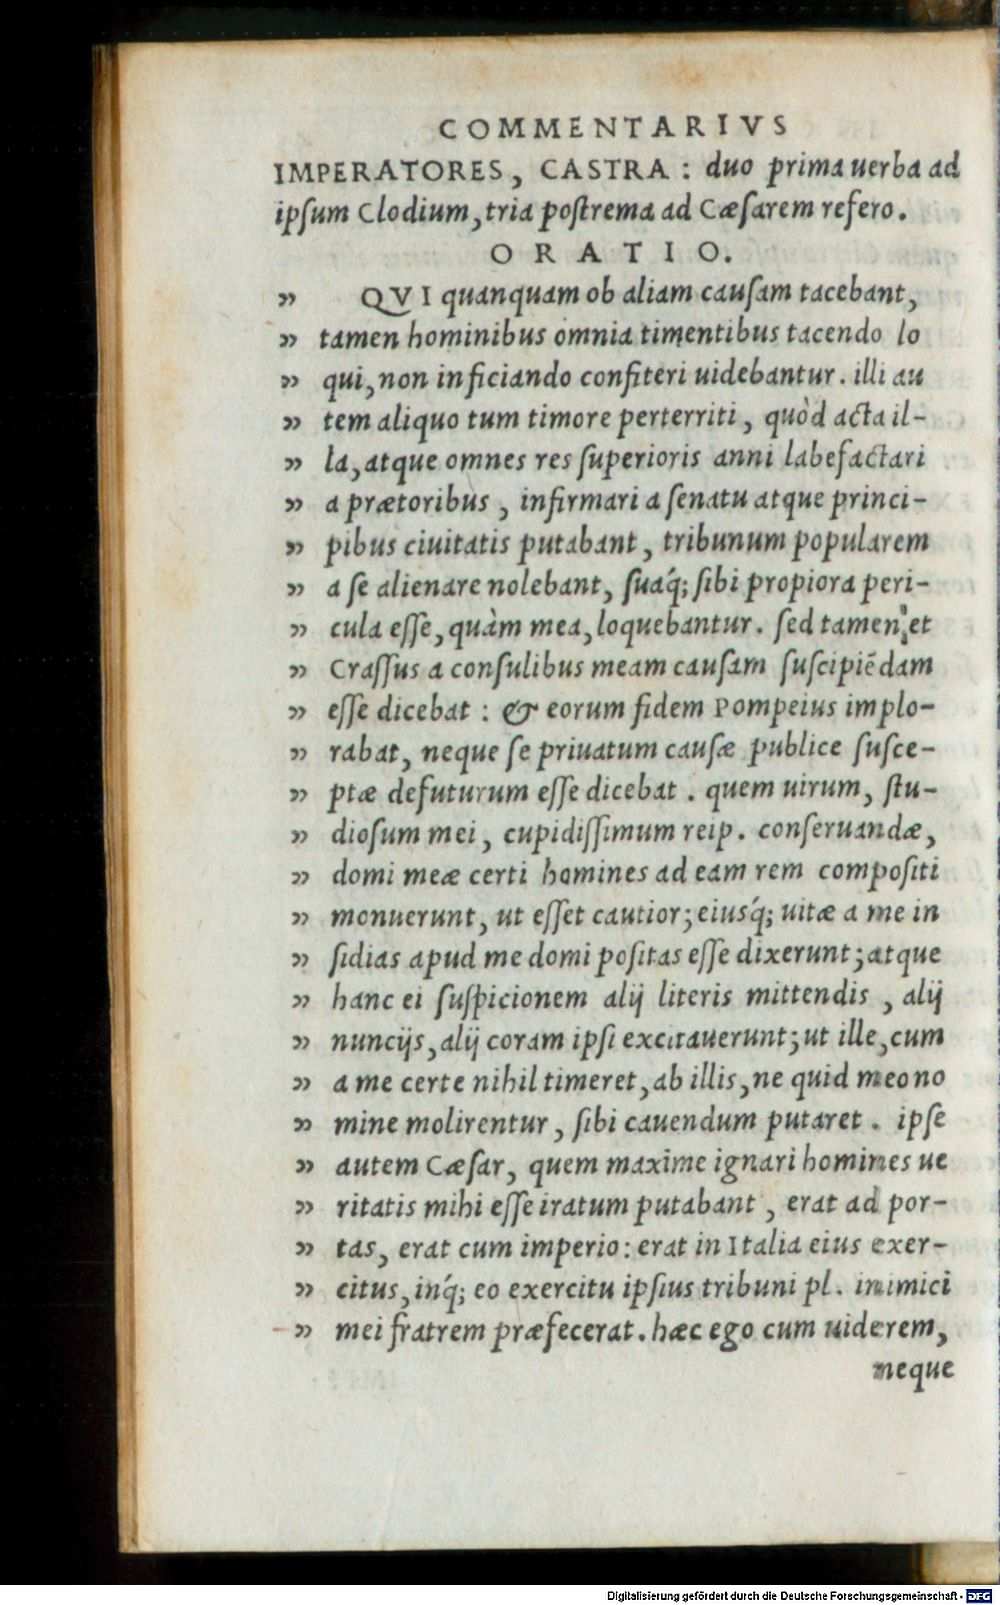 COMMENTARIVS
IMPERATORES, CASTRA: duo prima uerba ad
ipſum Clodium, tria poſtrema ad Cæſarem refero.
ORATIO.
” QVI quanquam ob aliam cauſam tacebant,
” tamen hominibus omnia timentibus tacendo lo
” qui, non inficiando confiteri uidebantur. illi au
” tem aliquo tum timore perterriti, quòd acta il-
” la, atque omnes res ſuperioris anni labefactari
” a prætoribus, infirmari a ſenatu atque princi-
” pibus ciuitatis putabant, tribunum popularem
” a ſe alienare nolebant, ſuaq́; ſibi propiora peri-
” cula eſſe, quàm mea, loquebantur. ſed tamen et
” Craſſus a conſulibus meam cauſam ſuſcipiēdam
” eſſe dicebat: & eorum fidem Pompeius implo-
” rabat, neque ſe priuatum cauſæ publice ſuſce-
” ptæ defuturum eſſe dicebat. quem uirum, ſtu-
” dioſum mei, cupidiſſimum reip. conſeruandæ,
” domi meæ certi homines ad eam rem compoſiti
” monuerunt, ut eſſet cautior; eiusq́; uitæ a me in
” ſidias apud me domi poſitas eſſe dixerunt; atque
” hanc ei ſuſpicionem alij literis mittendis, alij
” nuncijs, alij coram ipſi excitauerunt; ut ille, cum
” a me certe nihil timeret, ab illis, ne quid meo no
” mine molirentur, ſibi cauendum putaret. ipſe
” autem Cæſar, quem maxime ignari homines ue
” ritatis mihi eſſe iratum putabant, erat ad por-
” tas, erat cum imperio: erat in Italia eius exer-
” citus, inq́; eo exercitu ipſius tribuni pl. inimici
” mei fratrem præfecerat. hæc ego cum uiderem,
neque
Digitalisierung gefördert durch die Deutsche Forschungsgemeinschaft - DFG